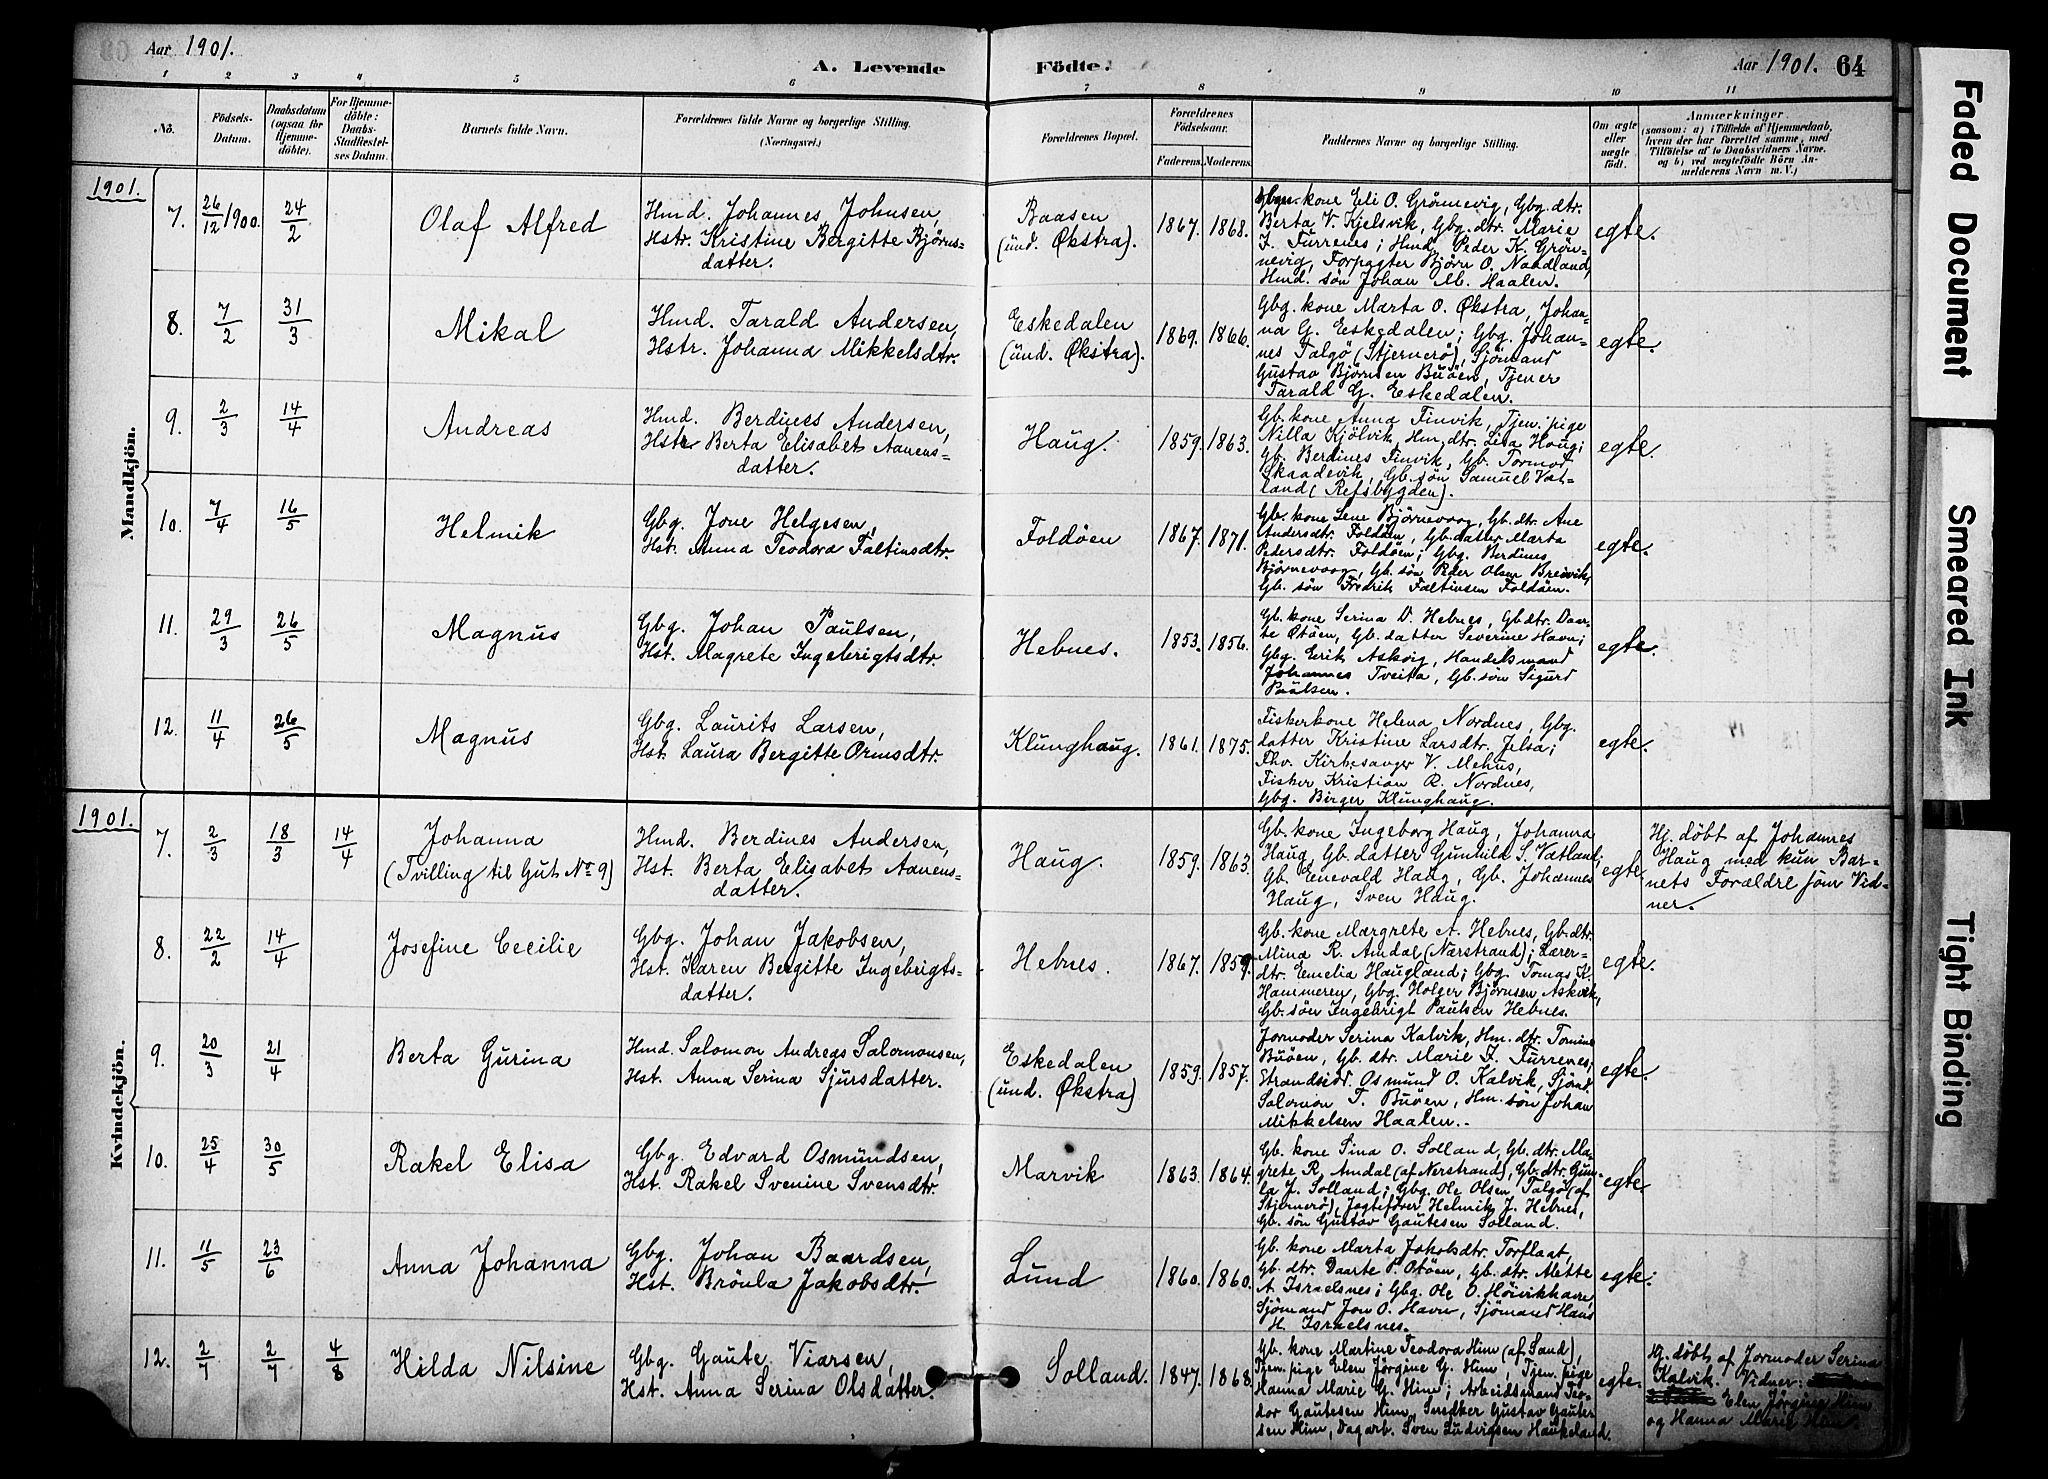 Aar 1901.
A. Levende Födte.
Aar 1901. 64
1 2 3 4 5 6 7 8 9 10 11
No.
Födsels-Datum.
Daabsdatum (ogsaa for Hjemmedöbte).
For Hjemmedöbte: Daabs-Stadfæstelses Datum.
Barnets fulde Navn.
Forældrenes fulde Navne og borgerlige Stilling.
(Næringsvei.)
Forældrenes Bopæl.
Forældrenes Födselsaar.
Faderens. Moderens.
Faddernes Navne og borgerlige Stilling.
Om ægte eller uægte födt.
Anmærkninger
(saasom: a) i Tilfælde af Hjemmedaab,
hvem der har forrettet samme, med
Tilföielse af to Daabsvidners Navne,
og b) ved uægtefödte Börn An-
melderens Navn m. V.)
1901.
Mandkjön.
7. 26/12 1900. 24/2
Olaf Alfred
Hmd. Johannes Johnsen,
Hstr. Kristine Bergitte Björns-
datter.
Baasen
(und. Økstra).
1867. 1868.
kone Eli O. Grönnevig, Gbg. dtr.
Berta V. Kjelsvik, Gbg. dtr. Marie
J. Furrenes; Hmd. Peder K. Grön-
nevig, Forpagter Björn O. Naadland,
Hmd. sön Johan M. Haalen.
egte.
8. 7/2 31/3
Mikal
Hmd. Tarald Andersen,
Hstr. Johanna Mikkelsdtr.
Eskedalen
(und. Økstra).
1869. 1866.
Gbg. kone Marta O. Økstra, Johan-
na G. Eskedalen; Gbg. Johan-
nes Talgö (Stjernerö), Sjömand
Gustav Björnsen Buöen, Tjener
Tarald G. Eskedalen.
egte.
9. 2/3 14/4
Andreas
Hmd. Berdines Andersen,
Hstr. Berta Elisabet Aanens-
datter.
Haug.
1859. 1863.
Gb. kone Anna Finvik, Tjen. pige
Nilla Kjölvik, Hm. dtr. Lisa Haug;
Gb. Berdines Finvik, Gb. Tormod
Skaadevik, Gb. sön Samuel Vat-
land (Refsbygden).
egte.
10. 7/4 16/5
Helmik
Gbg. Jone Helgesen,
Hst. Anna Teodora Faltinsdtr.
Foldöen
1867. 1871.
Gb. kone Lene Björnevaag, Gb. dtr. Ane
Andersdtr. Foldöen, Gb. datter Marta
Pedersdtr. Foldöen; Gbg. Berdines
Björnevaag, Gb. sön Peder Olsen Breivik,
Gb. sön Fredrik Faltinsen Foldöen.
egte.
11. 29/3 26/5
Magnus
Gbg. Johan Paulsen,
Hst. Magrete Ingebrigtsdtr.
Hebnes.
1853. 1856.
Gb. kone Serina D. Hebnes, Gb. dtr. Daar-
te Otöen, Gb. datter Severine Havn;
Gbg. Erik Askvig, Handelsmand
Johannes Tveita, Gb. sön Sigurd
Paulsen.
egte.
12. 11/4 26/5
Magnus
Gbg. Laurits Larsen,
Hst. Laura Bergitte Ormsdtr.
Klunghaug.
1861. 1875.
Fiskerkone Helena Nordnes, Gbg.
datter Kristine Larsdtr. Jelsa;
Fhv. Kirkesanger V. Mehus,
Fisker Kristian R. Nordnes,
Gbg. Birger Klunghaug.
egte.
1901.
Kvindekjön.
7. 2/3 18/3 14/4
Johanna
(Tvilling til Gut No 9)
Hmd. Berdines Andersen,
Hst. Berta Elisabet Aanens-
datter.
Haug.
1859. 1863.
Gb. kone Ingeborg Haug, Johanna
Haug, Gb. datter Gunhild S. Vatland;
Gb. Enevald Haug, Gb. Johannes
Haug, Sven Haug.
egte.
Hj. döbt af Johannes
Haug med kun Bar-
nets Forældre som Vid-
ner.
8. 22/2 14/4
Josefine Cecilie
Gbg. Johan Jakobsen,
Hst. Karen Bergitte Ingebrigts-
datter.
Hebnes.
1867. 1859.
Gb. kone Margrete A. Hebnes, Gb. dtr.
Mina R. Amdal (Nærstrand); Lærer-
dtr. Emelia Haugland; Gbg. Tomas K.
Hammeren, Gbg. Holger Björnsen Askvik,
Gb. sön Ingebrigt Paulsen Hebnes.
egte.
9. 20/3 21/4
Berta Gurina
Hmd. Salomon Andreas Salomonsen,
Hst. Anna Serina Sjursdatter.
Eskedalen
(und. Økstra)
1859. 1857.
Jormoder Serina Kalvik, Hm. dtr. Tomine
Buöen, Gb. dtr. Marie J. Furrenes;
Strandsidd. Osmund O. Kalvik, Sjömd.
Salomon T. Buöen, Hm. sön Johan
Mikkelsen Haalen.
egte.
10. 25/4 30/5
Rakel Elisa
Gbg. Edvard Osmundsen,
Hst. Rakel Svenine Svensdtr.
Marvik
1863. 1864.
Gb. kone Sina O. Solland, Gb. dtr. Ma-
grete R. Amdal (af Nerstrand), Gb. dtr. Gun-
la J. Solland; Gbg. Ole Olsen Talgö (af
Stjernerö), Jagtefører Helmik J. Hebnes,
Gb. sön Gustav Gautesen Solland.
egte.
11. 11/5 23/6
Anna Johanna
Gbg. Johan Baardsen,
Hst. Brönla Jakobsdtr.
Lund
1860. 1860.
Gb. kone Marta Jakobsdtr. Torflaat,
Gb. dtr. Daarte P. Otöen, Gb. dtr. Mette
A. Israelsnes; Gbg. Ole O. Höivikhavn,
Sjömand Jon O. Havn, Sjömand Hans
H. Israelsnes.
egte.
12. 2/7 2/7 4/8
Hilda Nilsine
Gbg. Gaute Viarsen,
Hst. Anna Serina Olsdatter.
Solland.
1847. 1868.
Gb. kone Martine Teodora Him (af Sand),
Tjen. pige Elen Jörgine G. Him, Tjen. pige
Hanna Marie G. Him; Arbeidsmand Teo-
dor Gautesen Him, Snedker Gustav Gaute-
sen Him, Dagarb. Sven Ludvigsen Haukeland.
egte.
Hj. döbt af Jormoder Serina
Kalvik. Vidner:
Elen Jörgine Him
og Hanna Marie Him.
Faded Document
Smeared Ink
Tight Binding